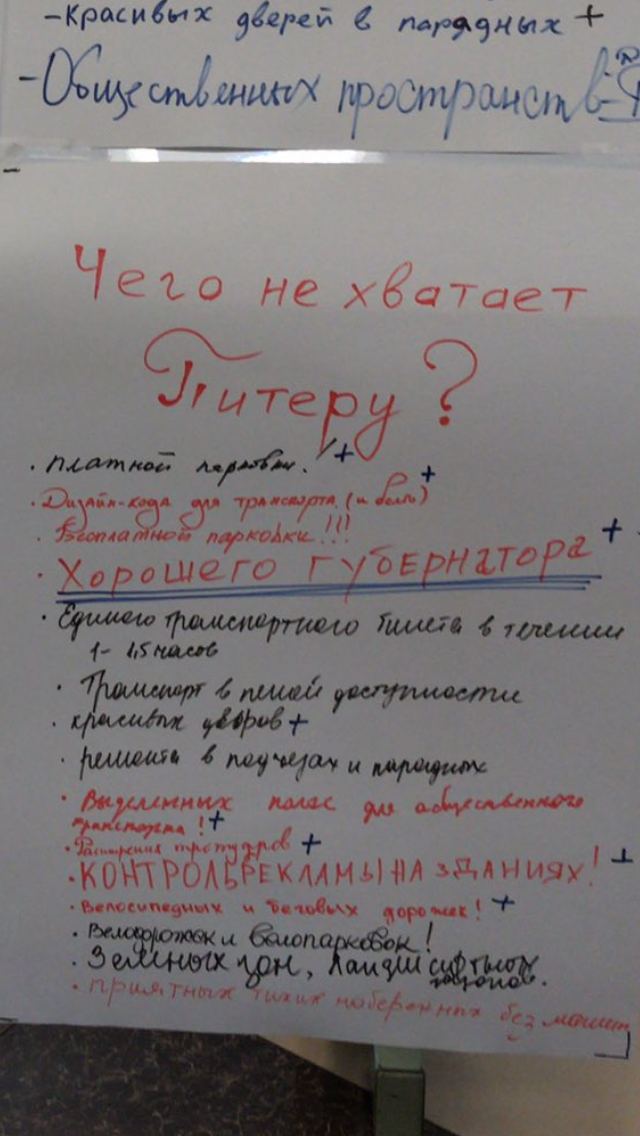 -Красивых дверей в парадных +
-Общественных пространств-
Чего не хватает
Питеру?
· платной парковки! +
· Дизайн-кода для транспорта (и болл) +
· Бесплатной парковки!!!
· Хорошего губернатора +
· Единого транспортного билета в течении
1- 1,5 часов
· Транспорт в пешой доступности
· красивых дворов +
· ремонта в подъезах и парадных
· Выделенных полос для общественного
транспорта! +
· Расширения тротуаров +
· КОНТРОЛЬ РЕКЛАМЫ НА ЗДАНИЯХ! +
· Велосипедных и беговых дорожек! +
· Велодорожок и велопарковок!
· Зелёных зон,
газонов.
· приятных тихих набережных без машин